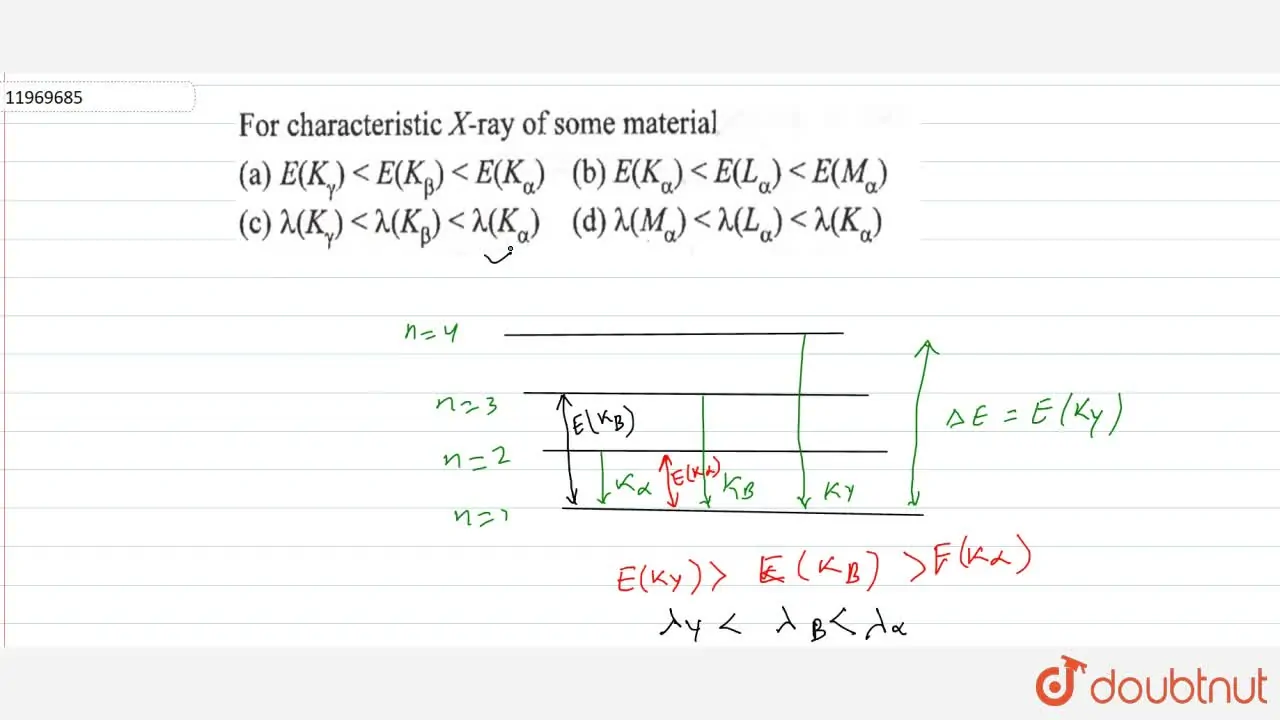 11969685
For characteristic X-ray of some material
(a) E(Kγ) < E(Kβ) < E(Kα) (b) E(Kα) < E(Lα) < E(Mα)
(c) λ(Kγ) < λ(Kβ) < λ(Kα) (d) λ(Mα) < λ(Lα) < λ(Kα)
n=4
n=3
E(KB)
ΔE = E(Kγ)
n=2
E(Kα)
Kα
KB
Kγ
n=1
E(Kγ) > E(KB) > E(Kα)
λγ < λB < λα
doubtnut